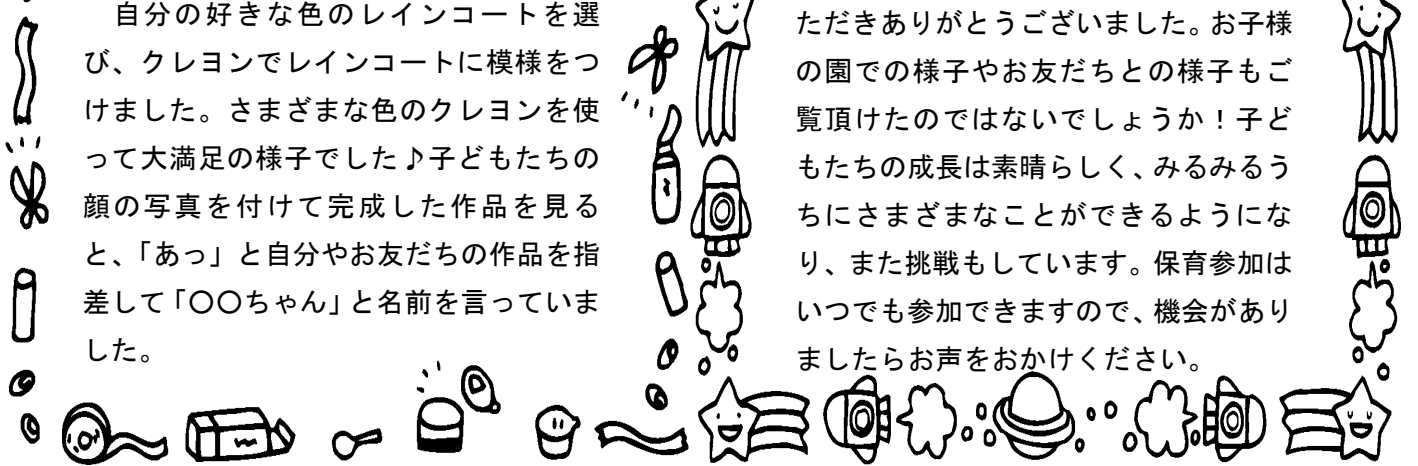 自分の好きな色のレインコートを選
び、クレヨンでレインコートに模様をつ
けました。さまざまな色のクレヨンを使
って大満足の様子でした♪子どもたちの
顔の写真を付けて完成した作品を見る
と、「あっ」と自分やお友だちの作品を指
差して「〇〇ちゃん」と名前を言っていま
した。
ただきありがとうございました。お子様
の園での様子やお友だちとの様子もご
覧頂けたのではないでしょうか！子ど
もたちの成長は素晴らしく、みるみるう
ちにさまざまなことができるようにな
り、また挑戦もしています。保育参加は
いつでも参加できますので、機会があり
ましたらお声をおかけください。